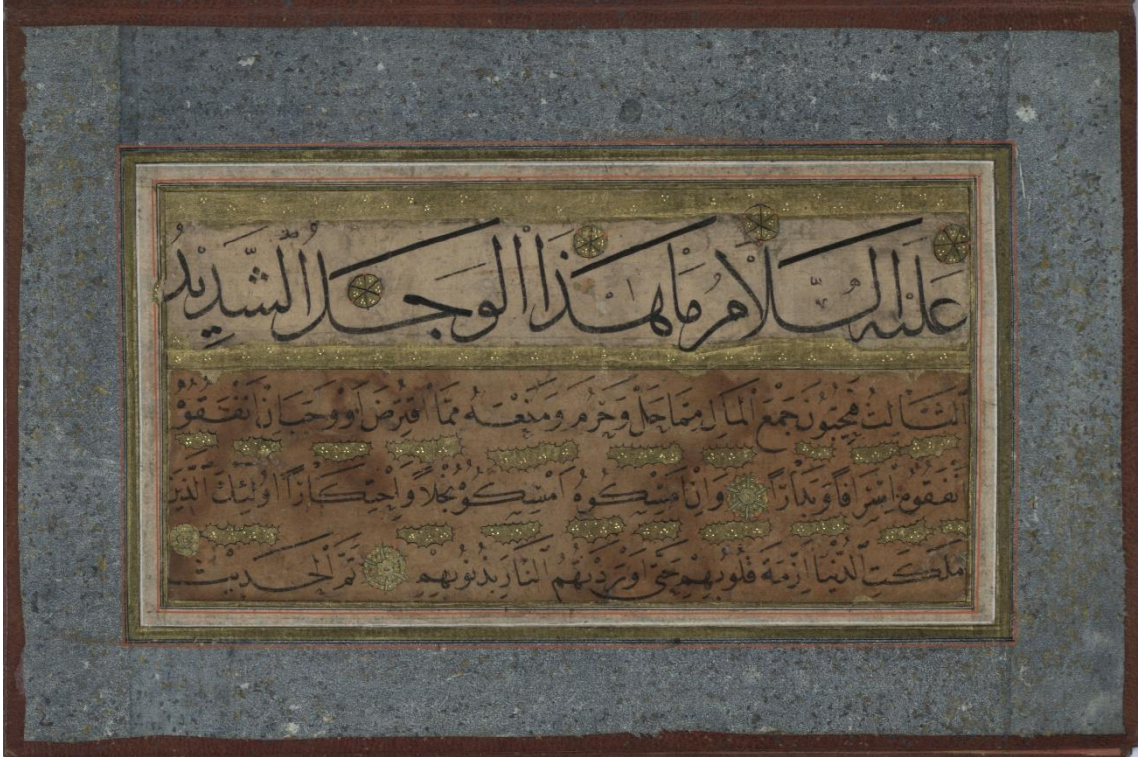 عليه السلام ما هذا الوجل الشديد
الثالث يحبون جمع المال مما حل وحرم ومنعه مما افترض ووجب ان انفقوه
انفقوه اسرافا وبدارا وان امسكوه امسكوه بخلا واحتكارا اولئك الذين
ملكت الدنيا ازمة قلوبهم حتى اوردتهم النار بذنوبهم تم الحديث